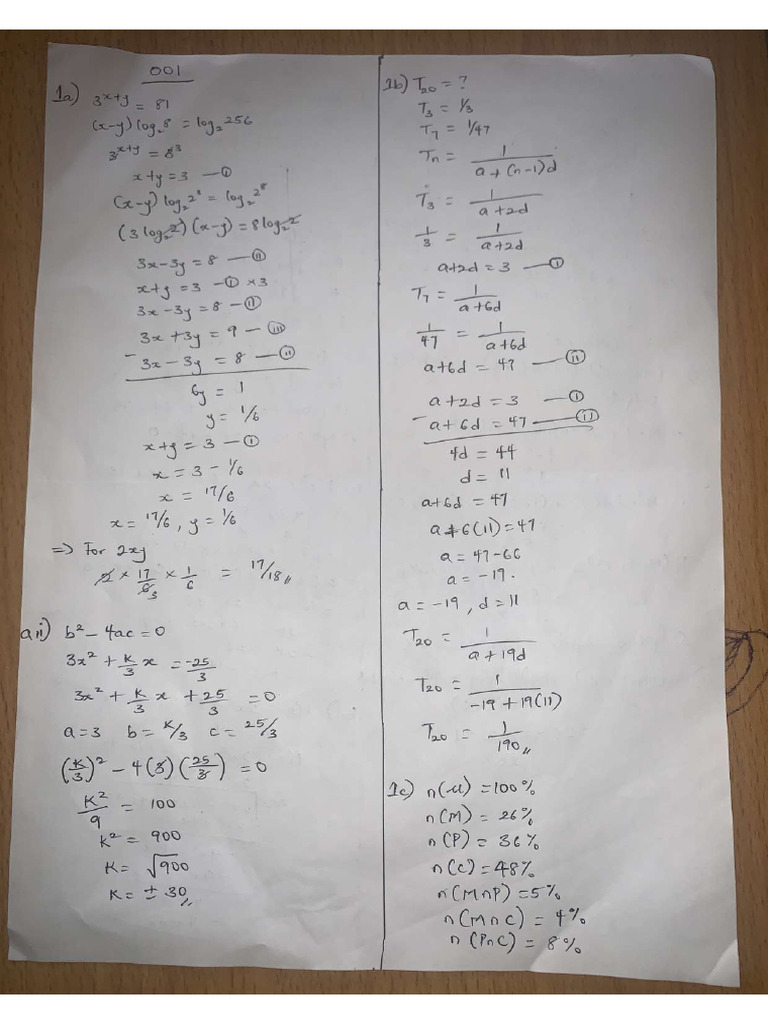 001
1a) 3^(x+y) = 81
(x-y) log₂8 = log₂256
3^(x+y) = 8³
x+y = 3 —(i)
(x-y) log₂2³ = log₂2⁸
(3 log₂2) (x-y) = 8 log₂2
3x-3y = 8 —(ii)
x+y = 3 —(i) ×3
3x-3y = 8 —(ii)
3x +3y = 9 —(iii)
- 3x - 3y = 8 —(ii)
6y = 1
y = 1/6
x+y = 3 —(i)
x = 3 - 1/6
x = 17/6
x = 17/6, y = 1/6
=> For 2xy
2 × 17/6 × 1/6 = 17/18
aii) b² - 4ac = 0
3x² + K/3 x = -25/3
3x² + K/3 x + 25/3 = 0
a = 3 b = K/3 c = 25/3
(K/3)² - 4(3)(25/3) = 0
K²/9 = 100
K² = 900
K = √900
K = ± 30
1b) T₂₀ = ?
T₃ = 1/3
T₇ = 1/47
Tn = 1/(a + (n-1)d)
T₃ = 1/(a+2d)
1/3 = 1/(a+2d)
a+2d = 3 —(i)
T₇ = 1/(a+6d)
1/47 = 1/(a+6d)
a+6d = 47 —(ii)
a+2d = 3 —(i)
- a+6d = 47 —(ii)
4d = 44
d = 11
a+6d = 47
a+6(11) = 47
a = 47-66
a = -19.
a = -19, d = 11
T₂₀ = 1/(a+19d)
T₂₀ = 1/(-19+19(11))
T₂₀ = 1/190
1c) n(μ) = 100%
n(M) = 26%
n(P) = 36%
n(C) = 48%
n(M∩P) = 5%
n(M∩C) = 4%
n(P∩C) = 8%